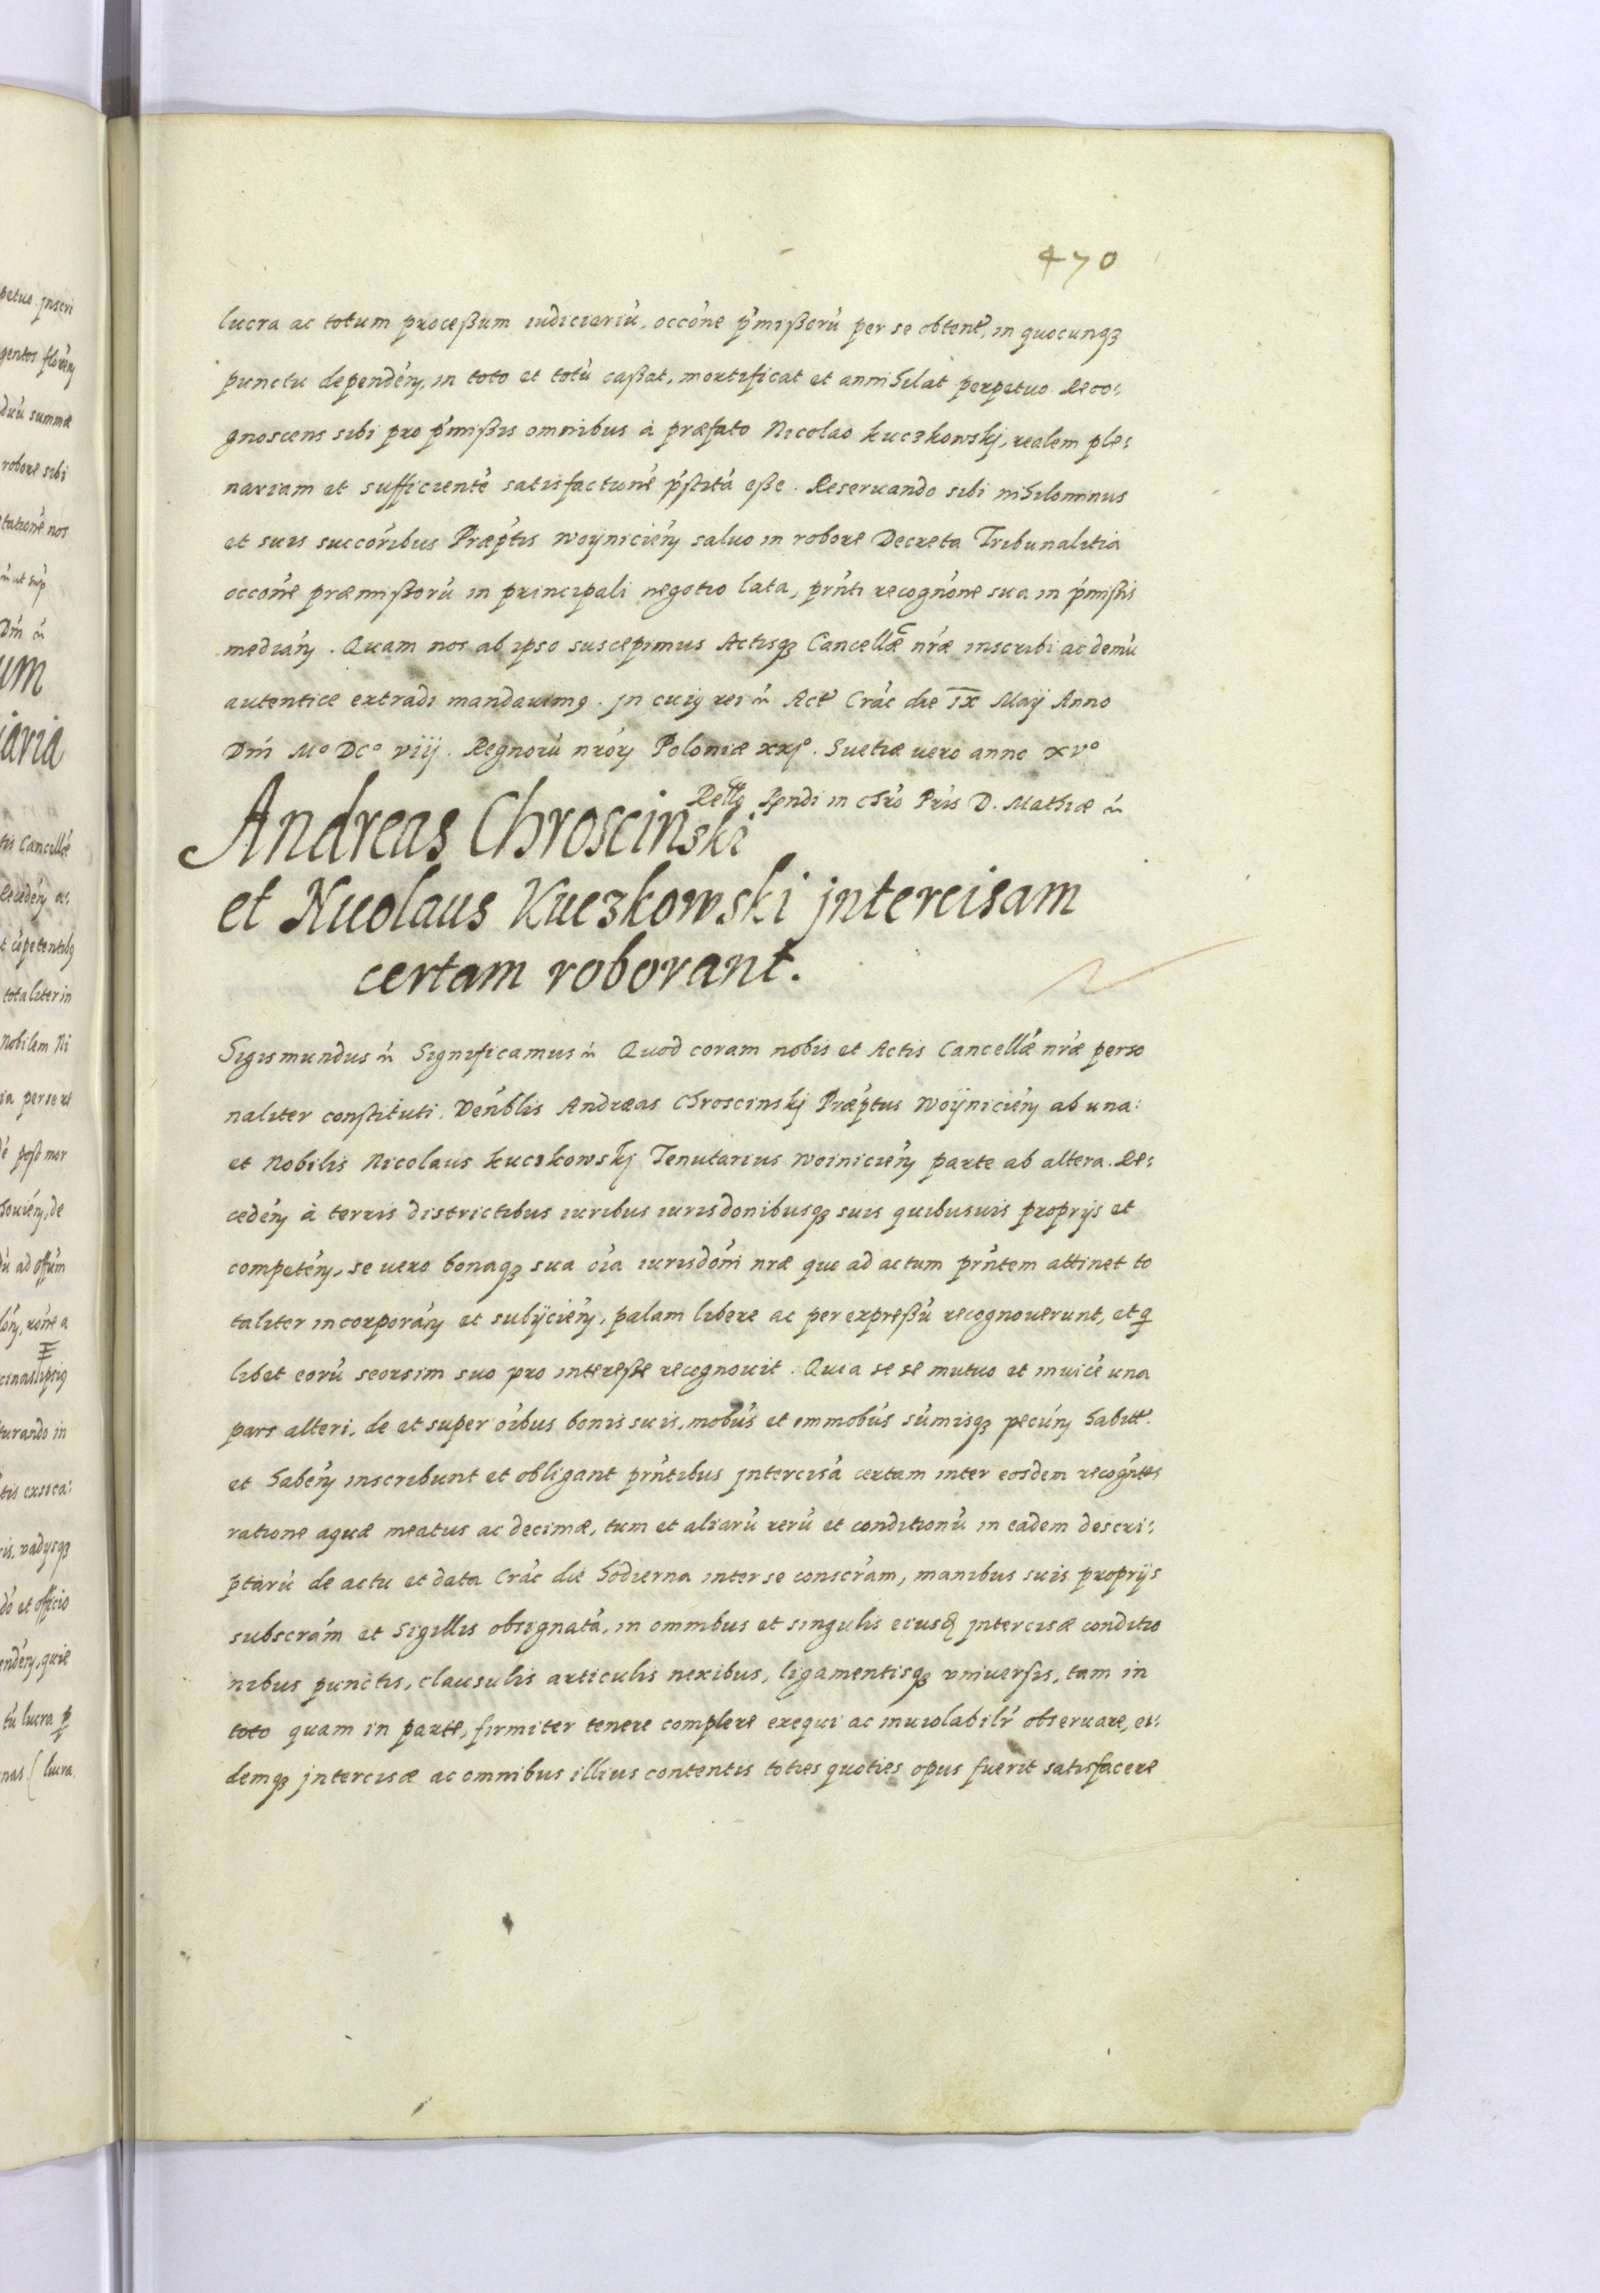 470
lucra ac totum proceßum iudiciariú, occóne p̃mißorú per se obtent̃, in quocunqȝ
punctu dependén, in toto et totú caßat, mortificat et annihilat perpetuo. Reco:
gnoscens sibi pro p̃mißis omnibus à præfato Nicolao Kuczkowskj, realem ple:
nariam et sufficienté satisfactioné p̃stitá eße. Reseruando sibi nihilominus
et suis succóribus Præp̃tis Woynicién saluo in robore Decreta Tribunalitia
occóne præmißorú in principali negotio lata, prñti recognóne sua in p̃mißis
median̄. Quam nos ab ipso suscepimus Actisqȝ Cancellæ nr̃æ inscribi ac demú
autentice extradi mandauimꝰ. jn cuiꝰ rei ñ Act̃ Crác die IX Maij Anno
Dn̄i Mº DCº viij. Regnorú nrór Poloniæ xxjº. Suetiæ uero anno xvº
Rel̃lo Rn̄di in chr̃o Pr̃is D. Mathiæ ñ
Andreas Chroscinski
et Nicolaus Kuczkowski jntercisam
certam roborant.
Sigismundus ñ Significamus ñ Quod coram nobis et Actis Cancellæ nr̃æ perso
naliter constituti. Venĩblis Andreas Chroscinskj Præp̃tus Woynicién ab una:
et Nobilis Nicolaus Kuczkowskj Tenutarius Woinicién parte ab altera. Re:
cedén à terris districtibus iuribus iurisdonibusqȝ suis quibusuis proprijs et
competén, se uero bonaqȝ sua óia iurisdóni nr̃æ quo ad actum prñtem attinet to
taliter incorporán et subijcién, palam libere ac per expreßú recognouerunt, et q̃
libet eorú seorsim suo pro intereße recognouit. Quia se se mutuo et inuicé una
pars alteri, de et super óibus bonis suis, mobús et immobús súmisqȝ pecún habit̃.
et habén inscribunt et obligant prñtibus jntercisá certam inter eosdem recogñtes
ratione aquæ meatus ac decimæ, tum et aliarú rerú et conditionú in eadem descri:
ptarú de actu et data Crác die hodierna inter se conscrám, manibus suis proprijs
subscrám et sigillis obsignatá, in omnibus et singulis eiusd̃ jntercisæ conditio
nibus punctis, clausulis articulis nexibus, ligamentisqȝ vniuersis, tam in
toto quam in parte, firmiter tenere complere exequi ac inuiolabilr̃ obseruare, ei:
demqȝ jntercisæ ac omnibus illius contentis toties quoties opus fuerit satisfacere